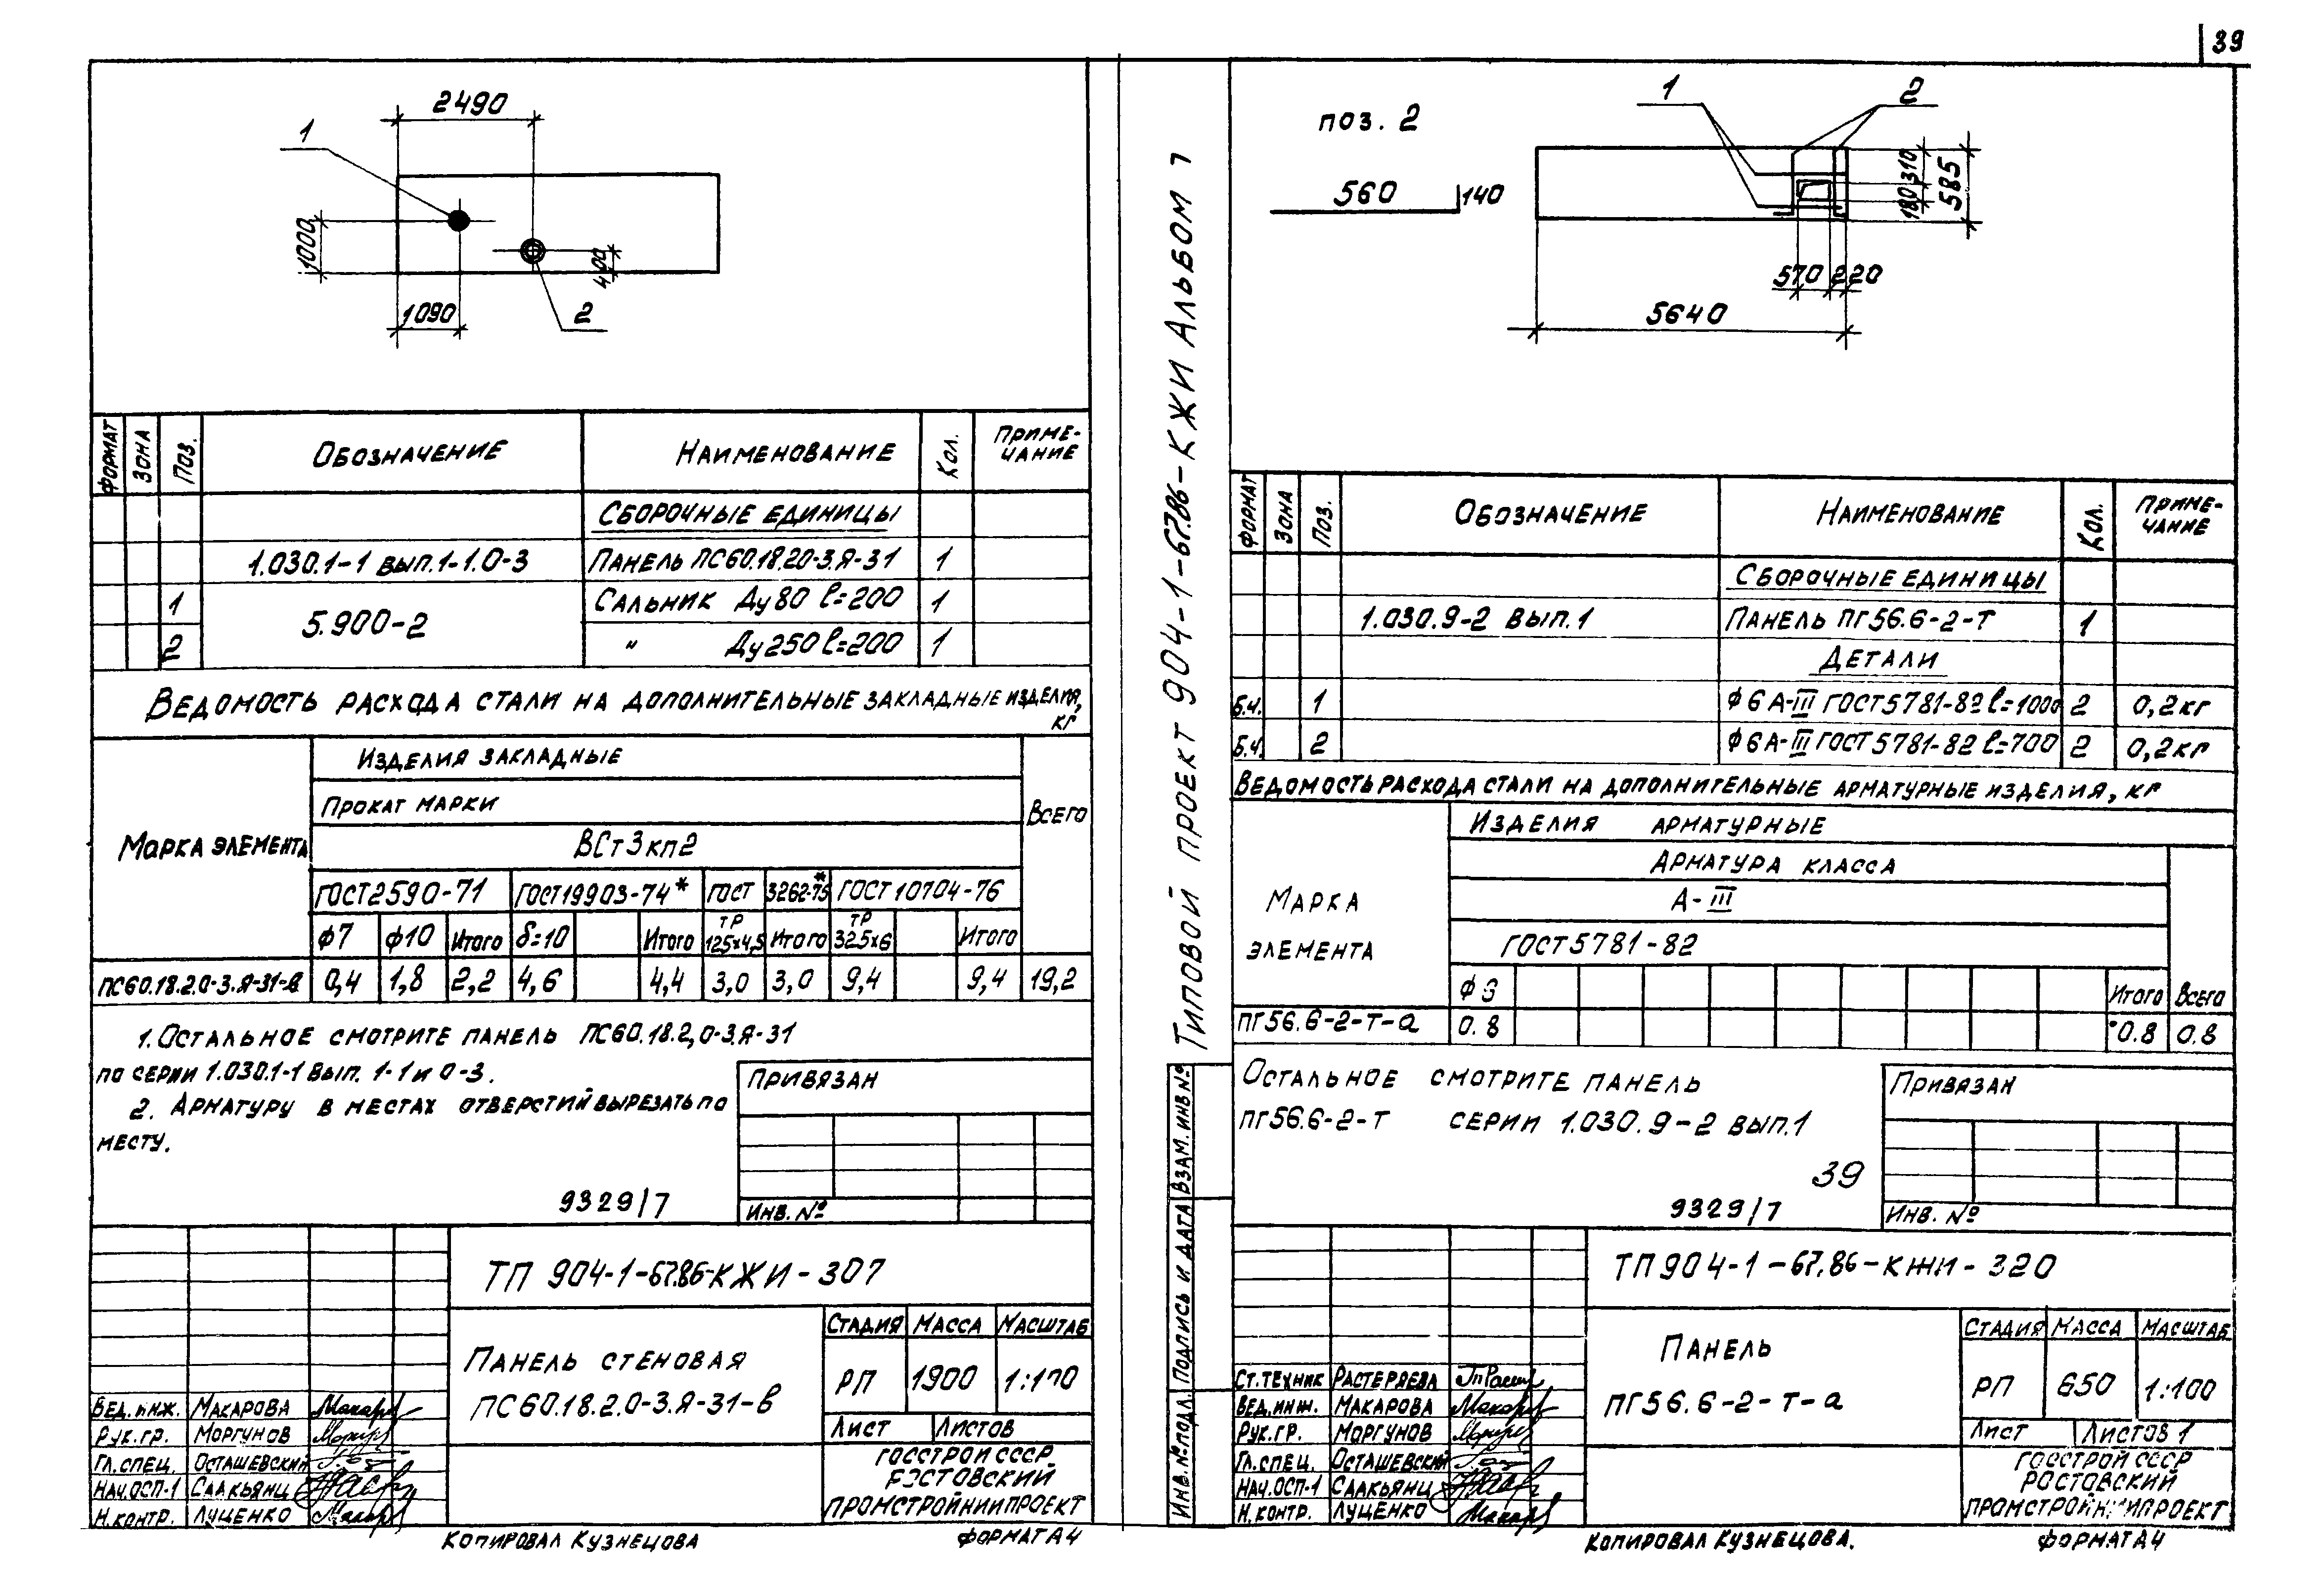 39
2490
1
1000
400
1090
2
ФОРМАТ ЗОНА ПОЗ. ОБОЗНАЧЕНИЕ НАИМЕНОВАНИЕ КОЛ. ПРИМЕ-
ЧАНИЕ
СБОРОЧНЫЕ ЕДИНИЦЫ
1.030.1-1 ВЫП.1-1.0-3 ПАНЕЛЬ ПС60.18.20-3.Я-31 1
1 5.900-2 САЛЬНИК Ду80 ℓ=200 1
2 " Ду250 ℓ=200 1
ВЕДОМОСТЬ РАСХОДА СТАЛИ НА ДОПОЛНИТЕЛЬНЫЕ ЗАКЛАДНЫЕ ИЗДЕЛИЯ,
КГ
МАРКА ЭЛЕМЕНТА ИЗДЕЛИЯ ЗАКЛАДНЫЕ ВСЕГО
ПРОКАТ МАРКИ
ВСт3кп2
ГОСТ2590-71 ГОСТ19903-74* ГОСТ 3262-75* ГОСТ 10704-76
ϕ7 ϕ10 Итого δ=10 Итого ТР 125х4,5 Итого ТР 325х6 Итого
ПС60.18.2.0-3.Я-31-в 0,4 1,8 2,2 4,6 4,4 3,0 3,0 9,4 9,4 19,2
1. ОСТАЛЬНОЕ СМОТРИТЕ ПАНЕЛЬ ПС60.18.2,0-3.Я-31
ПО СЕРИИ 1.030.1-1 ВЫП. 1-1 И 0-3.
2. АРМАТУРУ В МЕСТАХ ОТВЕРСТИЙ ВЫРЕЗАТЬ ПО
МЕСТУ.
ПРИВЯЗАН
ИНВ. №
9329/7
ТП 904-1-67.86-КЖИ-307
ПАНЕЛЬ СТЕНОВАЯ
ПС60.18.2.0-3.Я-31-в
СТАДИЯ МАССА МАСШТАБ
РП 1900 1:100
ЛИСТ ЛИСТОВ
ГОССТРОЙ СССР
РОСТОВСКИЙ
ПРОМСТРОЙНИИПРОЕКТ
ВЕД. ИНЖ. МАКАРОВА
РУК. ГР. МОРГУНОВ
ГЛ. СПЕЦ. ОСТАШЕВСКИЙ
НАЧ.ОСП-1 СААКЬЯНЦ
Н. КОНТР. ЛУЦЕНКО
КОПИРОВАЛ КУЗНЕЦОВА
ФОРМАТ А4
ТИПОВОЙ ПРОЕКТ 904-1-67.86-КЖИ АЛЬБОМ 7
ИНВ.№ ПОДЛ. ПОДПИСЬ И ДАТА ВЗАМ. ИНВ №
поз. 2
560 140
1
2
310
180
585
570 220
5640
ФОРМАТ ЗОНА ПОЗ. ОБОЗНАЧЕНИЕ НАИМЕНОВАНИЕ КОЛ. ПРИМЕ-
ЧАНИЕ
СБОРОЧНЫЕ ЕДИНИЦЫ
1.030.9-2 ВЫП.1 ПАНЕЛЬ ПГ56.6-2-Т 1
ДЕТАЛИ
Б.Ч. 1 ϕ6 А-III ГОСТ5781-82 ℓ=1000 2 0,2кг
Б.Ч. 2 ϕ6 А-III ГОСТ5781-82 ℓ=700 2 0,2кг
ВЕДОМОСТЬ РАСХОДА СТАЛИ НА ДОПОЛНИТЕЛЬНЫЕ АРМАТУРНЫЕ ИЗДЕЛИЯ, КГ
МАРКА
ЭЛЕМЕНТА
ИЗДЕЛИЯ АРМАТУРНЫЕ
АРМАТУРА КЛАССА
А-III
ГОСТ5781-82
Итого Всего
ПГ56.6-2-Т-а 0.8 0.8 0.8
ОСТАЛЬНОЕ СМОТРИТЕ ПАНЕЛЬ
ПГ56.6-2-Т СЕРИИ 1.030.9-2 ВЫП.1
39
9329/7
ПРИВЯЗАН
ИНВ. №
ТП904-1-67.86-КЖИ-320
ПАНЕЛЬ
ПГ56.6-2-Т-а
СТАДИЯ МАССА МАСШТАБ
РП 650 1:100
ЛИСТ ЛИСТОВ 1
ГОССТРОЙ СССР
РОСТОВСКИЙ
ПРОМСТРОЙНИИПРОЕКТ
СТ.ТЕХНИК РАСТЕРЯЕВА
ВЕД.ИНЖ. МАКАРОВА
РУК.ГР. МОРГУНОВ
ГЛ.СПЕЦ. ОСТАШЕВСКИЙ
НАЧ.ОСП-1 СААКЬЯНЦ
Н.КОНТР. ЛУЦЕНКО
КОПИРОВАЛ КУЗНЕЦОВА.
ФОРМАТ А4